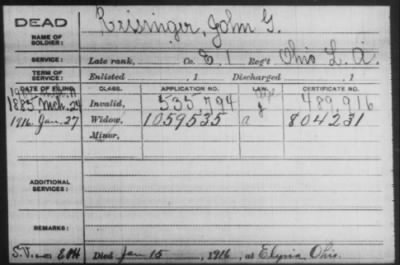 DEAD
NAME OF SOLDIER: Reissinger, John G.
SERVICE: Late rank, Co. E, 1 Reg't Ohio L. A.
TERM OF SERVICE: Enlisted , 1 Discharged , 1
DATE OF FILING. CLASS. APPLICATION NO. LAW. CERTIFICATE NO.
1885 Mch. 24 Invalid, 535,794 489,916
1916 Jan. 27 Widow, 1059535 a 804231
Minor,
ADDITIONAL SERVICES:
REMARKS:
Died Jan 15, 1916, at Elyria Ohio.